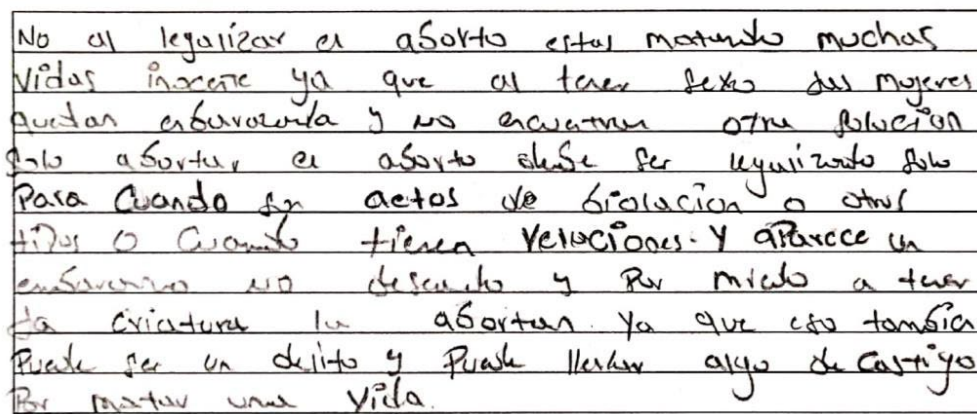 No al legalizar el aborto estas matando muchas
vidas inocente ya que al tener sexo las mujeres
quedan enbarazada y no encuentran otra solucion
solo abortar el aborto debe ser legalizado solo
Para Cuando son actos de biolacion o otros
tipos o Cuando tienen relaciones. Y aparece un
embarazo no deseado y Por miedo a tener
la criatura lo abortan. Ya que eso tambien
Puede ser un delito y Puede llevar algo de Castigo
Por matar una vida.